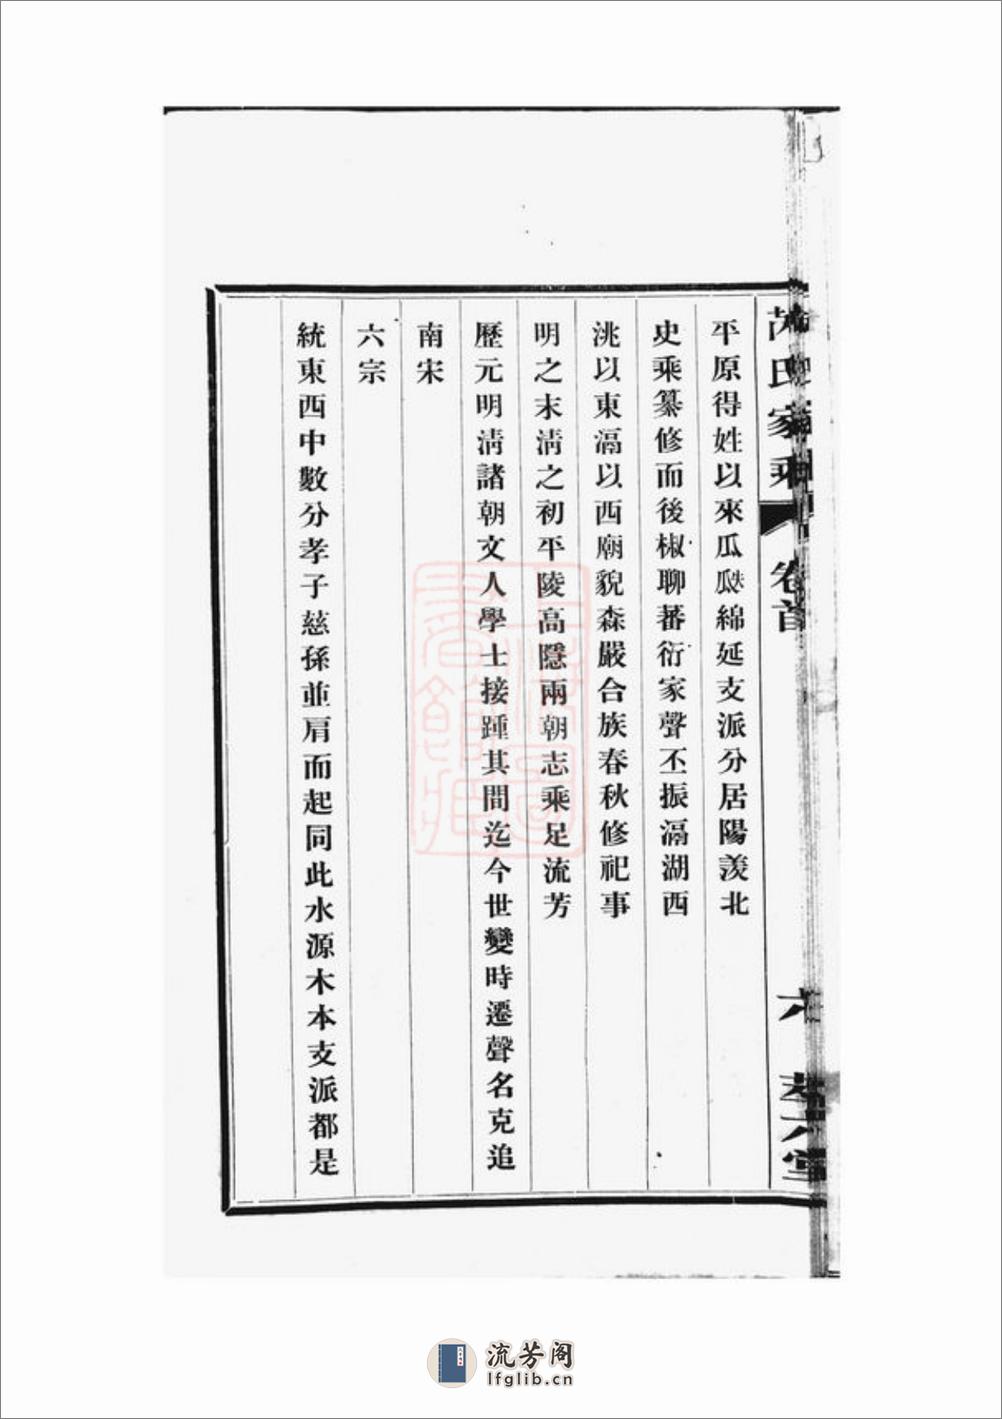 氏家乘
卷首
六
平原得姓以來瓜瓞綿延支派分居陽羨北
史乘纂修而後椒聊蕃衍家聲丕振滆湖西
洮以東滆以西廟貌森嚴合族春秋修祀事
明之末淸之初平陵高隱兩朝志乘足流芳
歷元明淸諸朝文人學士接踵其間迄今世變時遷聲名克追
南宋
六宗
統東西中數分孝子慈孫並肩而起同此水源木本支派都是
流芳阁
lfglib.cn